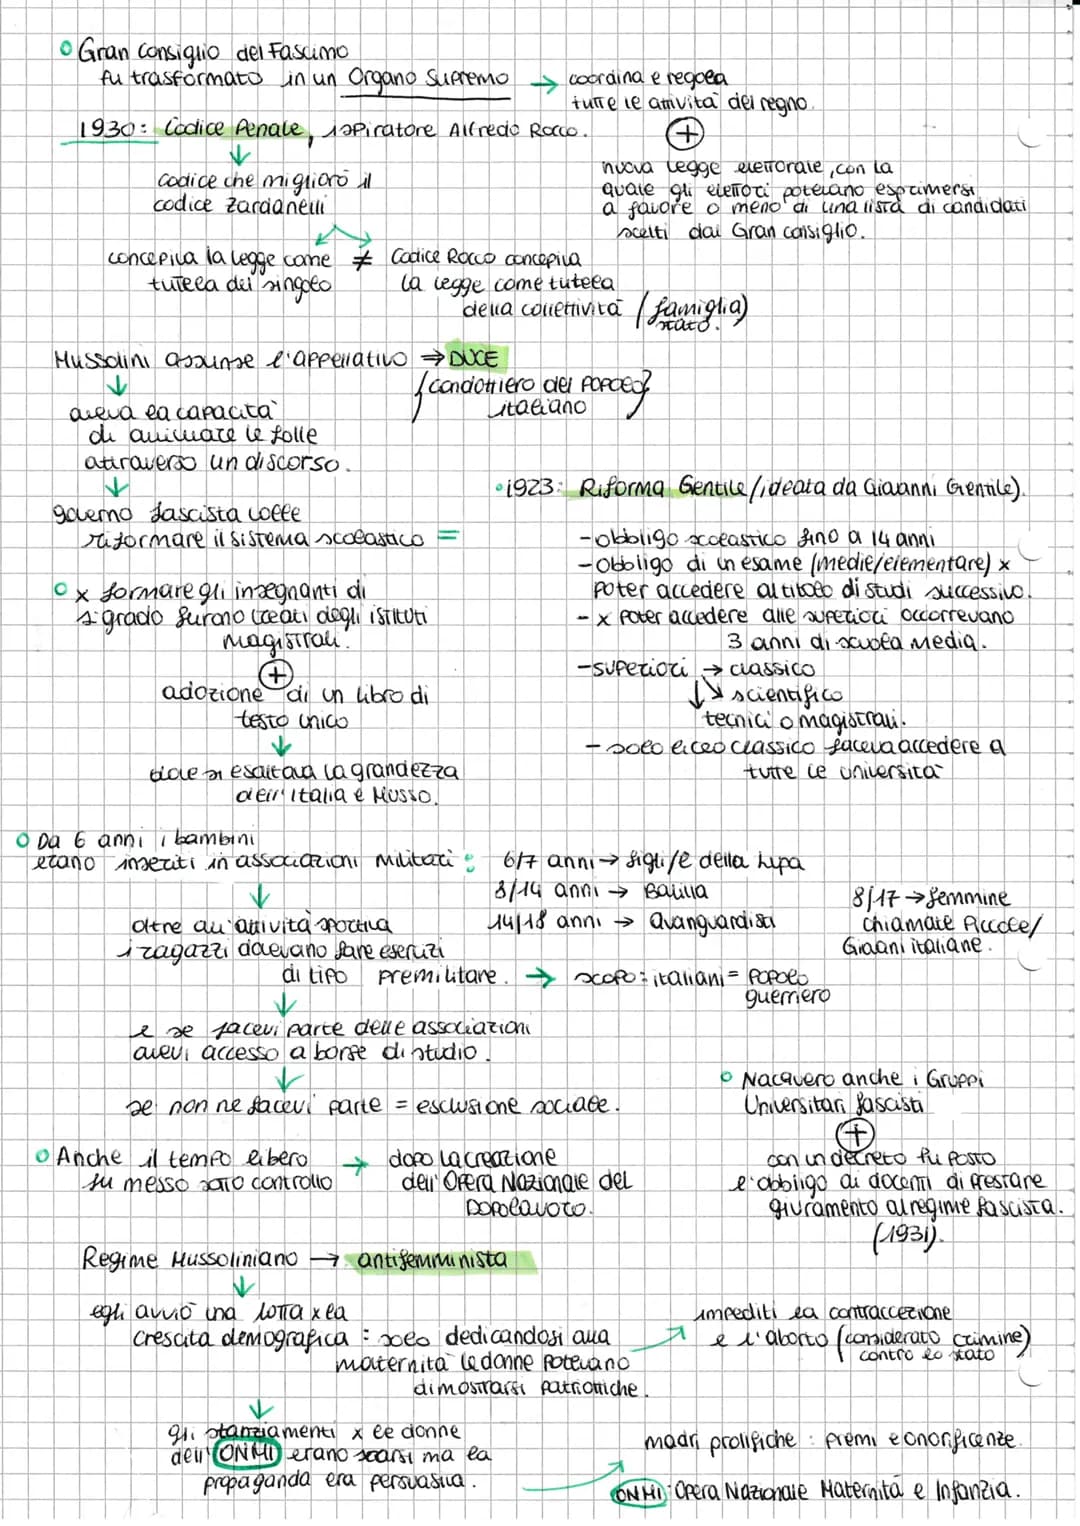 Gran Consiglio del Fascimo
fu trasformato in un Organo Supremo → coordina e regola
tutte le attività del regno.
+
1930: Codice Penale, ispiratore Alfredo Rocco.
nuova legge elettorale, con la
quale gli elettori potevano esprimersi
a favore o meno di una lista di candidati
scelti dal Gran consiglio.
codice che migliorò il
codice Zardanelli
concepiva la legge come ≠ Codice Rocco concepiva
tutela del singolo
la legge come tutela
della collettività (famiglia)
stato.
Mussolini assunse l'appellativo ⇒ DUCE
{condottiero del POPOLO}
italiano
aveva la capacità
di animare le folle
attraverso un discorso.
governo fascista volle
riformare il sistema scolastico =
1923: Riforma Gentile (ideata da Giovanni Gentile).
- obbligo scolastico fino a 14 anni
- obbligo di un esame (medie/elementare) x
poter accedere al titolo di studi successivo.
- x poter accedere alle superiori occorrevano
3 anni di scuola media.
- superiori → classico
↘ scientifico
↓ tecnici o magistrali.
- solo liceo classico faceva accedere a
tutte le università
x formare gli insegnanti di
1° grado furono creati degli istituti
magistrali.
+
adozione di un libro di
testo unico
dove si esaltava la grandezza
dell'Italia e Musso.
Da 6 anni i bambini
erano inseriti in associazioni militari: 6/7 anni → figli/e della lupa
8/14 anni → Balilla
14/18 anni → avanguardisti
8/17 → femmine
chiamate Piccole/
Giovani italiane.
oltre all'attività sportiva
i ragazzi dovevano fare esercizi
di tipo premilitare. → scopo: italiani = POPOLO
guerriero
e se facevi parte delle associazioni
avevi accesso a borse di studio.
se non ne facevi parte = esclusione sociale.
Nacquero anche i Gruppi
Universitari fascisti
+
con un decreto fu posto
l'obbligo ai docenti di prestare
giuramento al regime fascista.
(1931).
Anche il tempo libero → dopo la creazione
fu messo sotto controllo
dell'Opera Nazionale del
Dopolavoro.
Regime Mussoliniano → antifemminista
egli avviò una lotta x la
crescita demografica: solo dedicandosi alla
maternità le donne potevano
dimostrarsi patriottiche.
impediti la contraccezione
e l'aborto (considerato crimine)
contro lo stato
gli stanziamenti x le donne
dell'ONMI erano scarsi ma la
propaganda era persuasiva.
madri prolifiche: premi e onorificenze.
ONMI: Opera Nazionale Maternità e Infanzia.